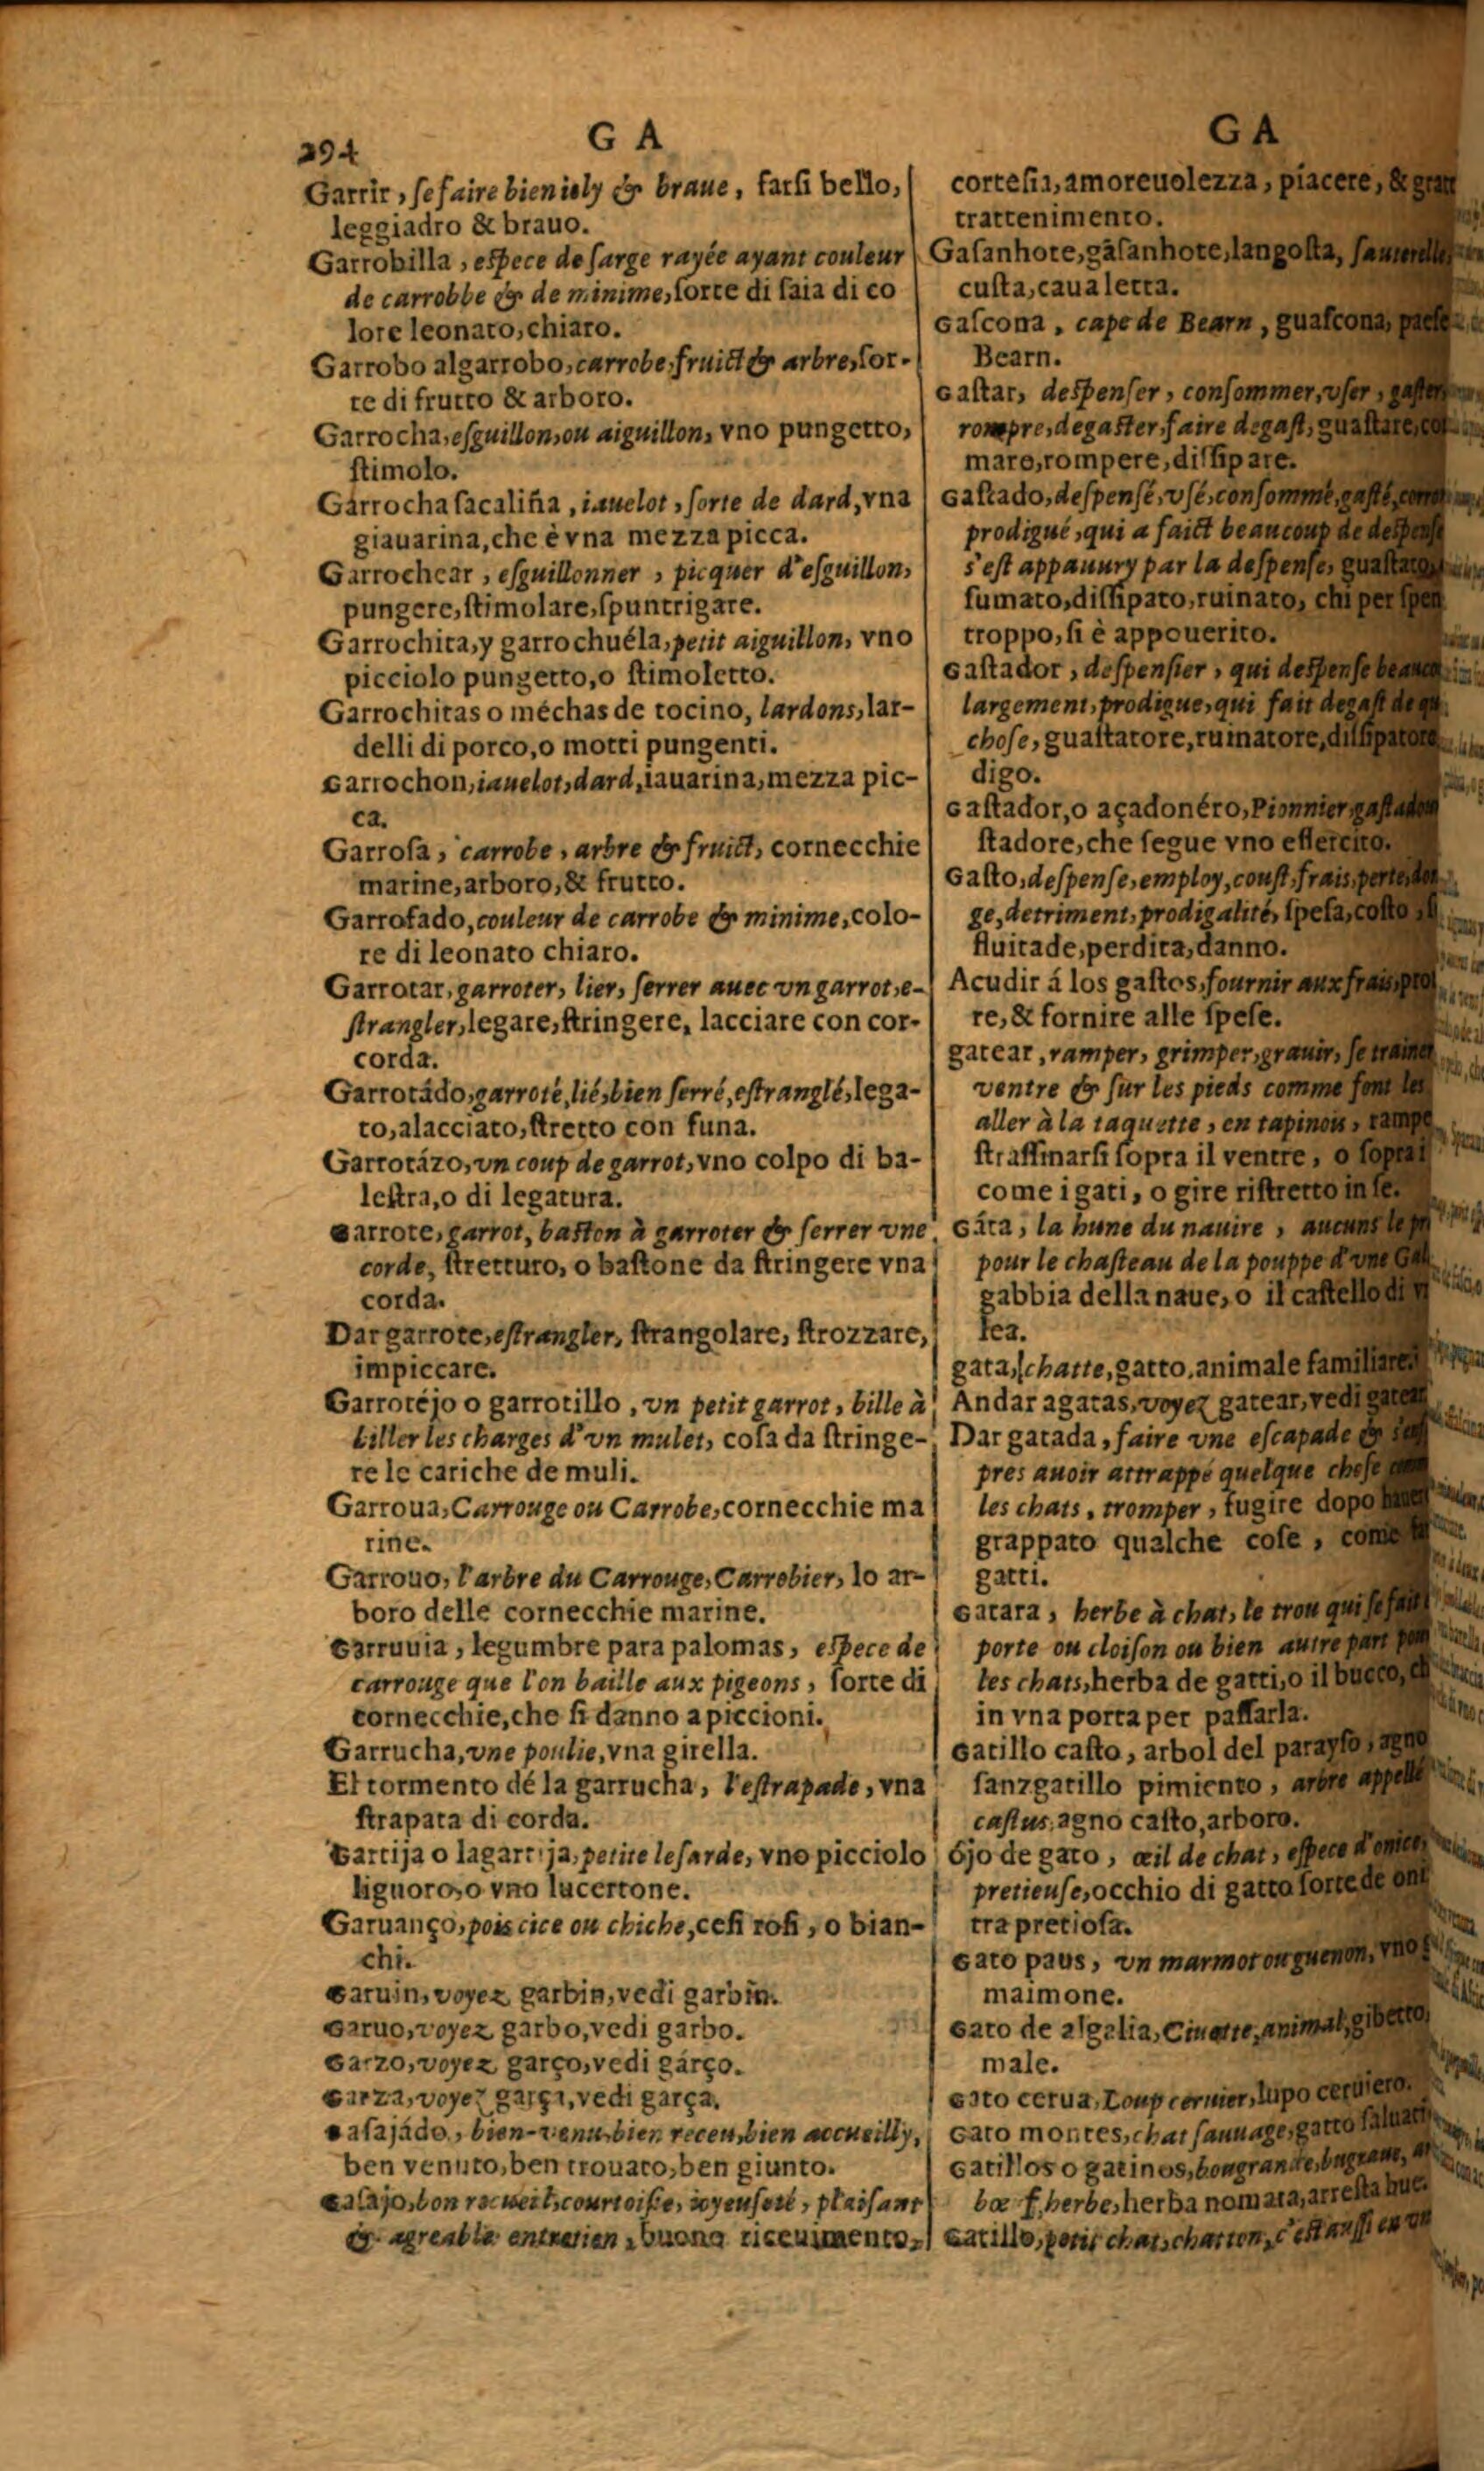 294
G A
Garrir, se faire bien ioly & braue, farsi bello,
leggiadro & brauo.
Garrobilla, espece de sarge rayée ayant couleur
de carrobbe & de minime, sorte di saia di co
lore leonato, chiaro.
Garrobo algarrobo, carrobe, fruict & arbre, sor-
te di frutto & arboro.
Garrocha, esguillon, ou aiguillon, vno pungetto,
stimolo.
Garrocha sacaliña, iauelot, sorte de dard, vna
giauarina, che è vna mezza picca.
Garrochear, esguillonner, picquer d'esguillon,
pungere, stimolare, spuntrigare.
Garrochita, y garrochuéla, petit aiguillon, vno
picciolo pungetto, o stimoletto.
Garrochitas o méchas de tocino, lardons, lar-
delli di porco, o motti pungenti.
Garrochon, iauelot, dard, iauarina, mezza pic-
ca.
Garrofa, carrobe, arbre & fruict, cornecchie
marine, arboro, & frutto.
Garrofado, couleur de carrobe & minime, colo-
re di leonato chiaro.
Garrotar, garroter, lier, serrer auec vn garrot, e-
strangler, legare, stringere, lacciare con cor-
corda.
Garrotádo, garroté, lié, bien serré, estranglé, lega-
to, alacciato, stretto con funa.
Garrotázo, vn coup de garrot, vno colpo di ba-
lestra, o di legatura.
Garrote, garrot, baston à garroter & serrer vne
corde, stretturo, o bastone da stringere vna
corda.
Dar garrote, estrangler, strangolare, strozzare,
impiccare.
Garrotéjo o garrotillo, vn petit garrot, bille à
biller les charges d'vn mulet, cosa da stringe-
re le cariche de muli.
Garroua, Carrouge ou Carrobe, cornecchie ma
rine.
Garrouo, l'arbre du Carrouge, Carrobier, lo ar-
boro delle cornecchie marine.
Garruuia, legumbre para palomas, espece de
carrouge que l'on baille aux pigeons, sorte di
cornecchie, che si danno a piccioni.
Garrucha, vne poulie, vna girella.
El tormento dé la garrucha, l'estrapade, vna
strapata di corda.
Gartija o lagartija, petite lesarde, vno picciolo
liguoro, o vno lucertone.
Garuanço, pois cice ou chiche, cesi rosi, o bian-
chi.
Garuin, voyez garbin, vedi garbin.
Garuo, voyez garbo, vedi garbo.
Garzo, voyez garço, vedi gárço.
Garza, voyez garça, vedi garça.
Gasajádo, bien-venu, bien receu, bien accueilly,
ben venuto, ben trouato, ben giunto.
Gasajo, bon recueil, courtoisie, ioyeuseté, plaisant
& agreable entretien, buono riceuimento,
G A
cortesia, amoreuolezza, piacere, &
trattenimento.
Gasanhote, gásanhote, langosta, sauterelle,
custa, caualetta.
Gascona, cape de Bearn, guascona,
Bearn.
Gastar, despenser, consommer, vser,
rompre, degaster, faire degast, guastare,
maro, rompere, dissipare.
Gastado, despensé, vsé, consommé, gasté,
prodigué, qui a faict beaucoup de despense
s'est appauury par la despense,
sumato, dissipato, ruinato, chi per
troppo, si è appouerito.
Gastador, despensier, qui despense
largement, prodigue, qui fait degast de
chose, guastatore, ruinatore, dissipatore
digo.
Gastador, o açadonéro, Pionnier,
stadore, che segue vno essercito.
Gasto, despense, employ, coust, frais, perte,
ge, detriment, prodigalité, spesa, costo,
fluitade, perdita, danno.
Acudir á los gastos, fournir aux frais,
re, & fornire alle spese.
gatear, ramper, grimper, grauir, se trainer
ventre & sur les pieds comme font les
aller à la taquette, en tapinois,
straffinarsi sopra il ventre, o sopra i
come i gati, o gire ristretto in se.
Gáta, la hune du nauire, aucuns le
pour le chasteau de la pouppe d'vne
gabbia della naue, o il castello di
lea.
gata, chatte, gatto, animale familiare.
Andar agatas, voyez gatear, vedi gatear
Dar gatada, faire vne escapade &
pres auoir attrappé quelque chose
les chats, tromper, fugire dopo
grappato qualche cose, come
gatti.
Gatara, herbe à chat, le trou qui se fait
porte ou cloison ou bien autre part
les chats, herba de gatti, o il bucco,
in vna porta per passarla.
Gatillo casto, arbol del parayso, agno
sanzgatillo pimiento, arbre appellé
castus, agno casto, arboro.
ójo de gato, œil de chat, espece d'onice,
pretieuse, occhio di gatto sorte de
tra pretiosa.
Gato paus, vn marmot ou guenon, vno
maimone.
Gato de algalia, Ciuette, animal, gibetto,
male.
Gato cerua, Loup ceruier, lupo ceruiero.
Gato montes, chat sauuage, gatto
Gatillos o gatinos,
bœ f, herbe, herba nomata, arresta bue.
Gatillo, petit chat, chatton, c'est aussi